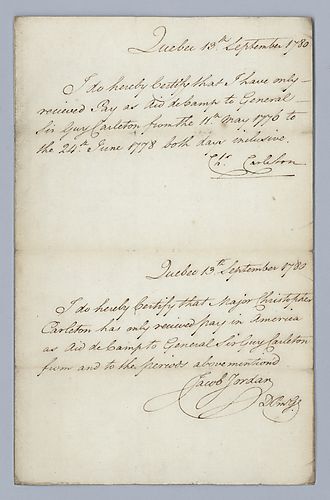 Quebec 13th September 1780
I do hereby Certify that I have only
recieved Pay as Aid de Camp to General
Sir Guy Carleton from the 11th May 1776 to
the 24th June 1778 both days inclusive.
Chr Carleton
Quebec 13th September 1780
I do hereby Certify that Major Christopher
Carleton has only recieved pay in America
as Aid de Camp to General Sir Guy Carleton
from and to the periods abovemention'd
Jacob Jordan